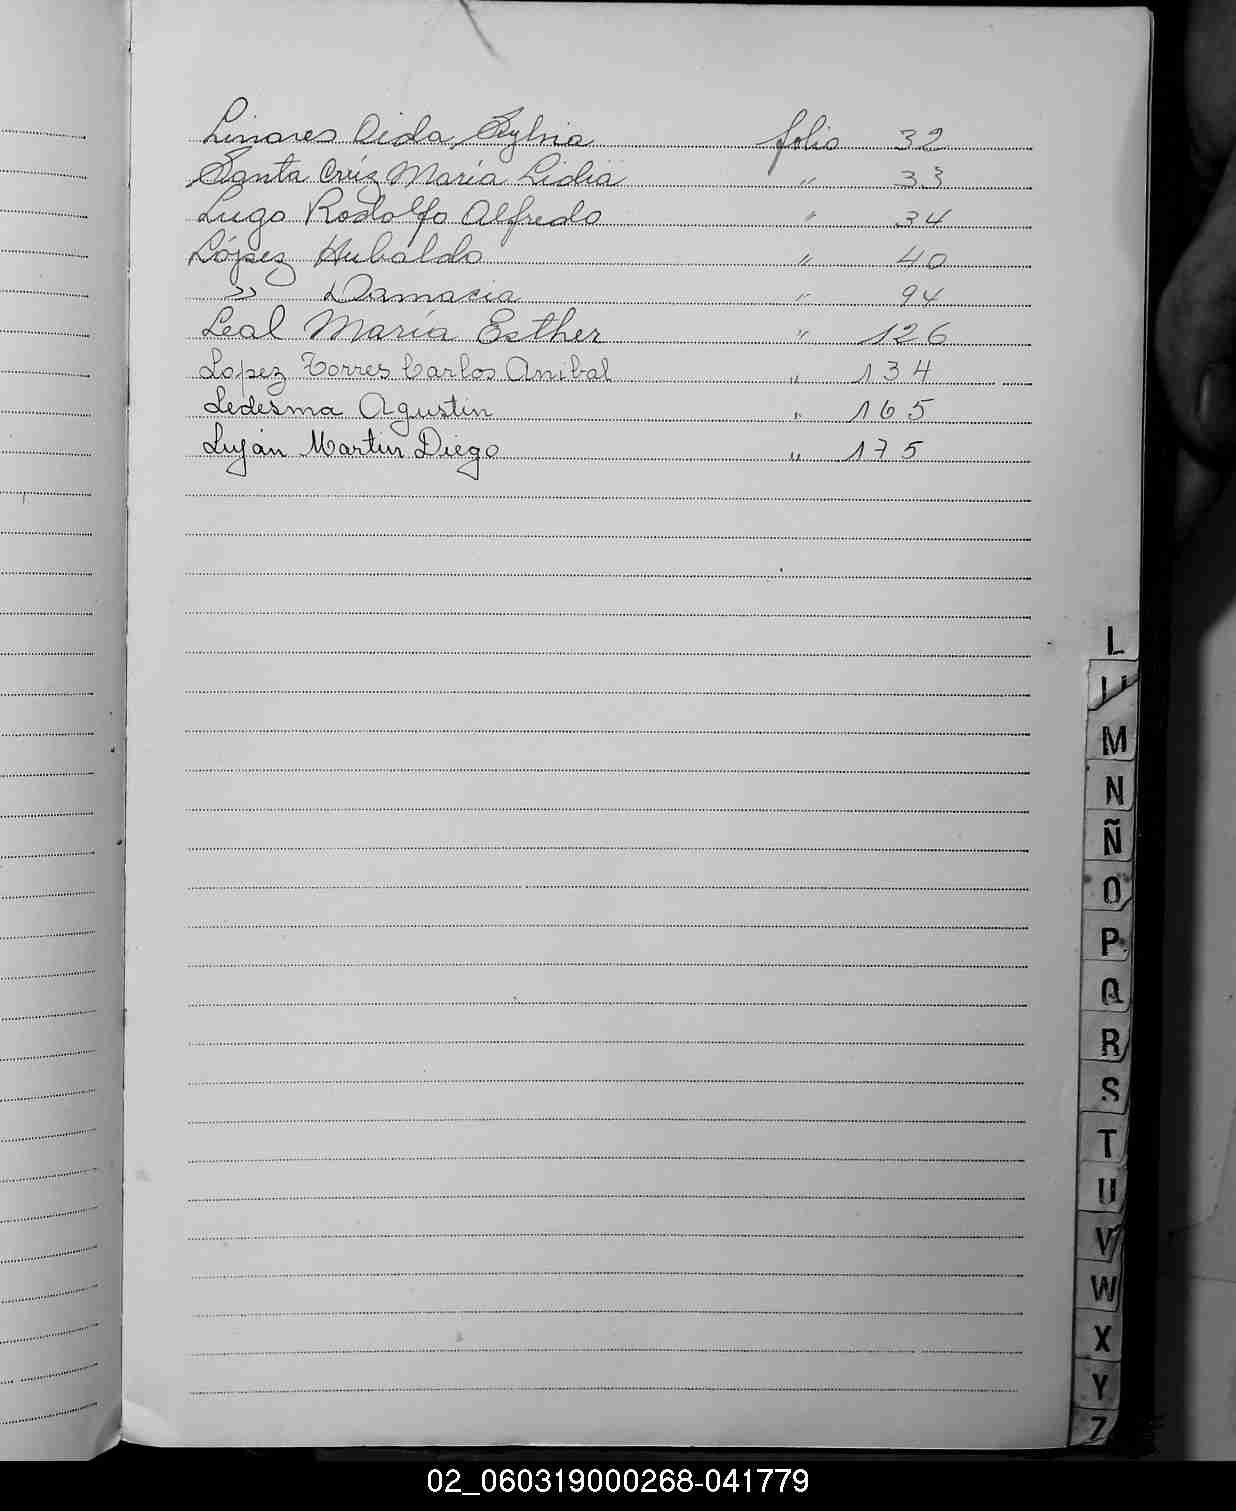 Linares Aida Sylvia folio 32
Santa Cruz María Lidia " 33
Lugo Rodolfo Alfredo " 34
López Hubaldo " 40
" Damacia " 94
Leal María Esther " 126
López Torres Carlos Anibal " 134
Ledesma Agustín " 165
Luján Martín Diego " 175
L
LL
M
N
Ñ
O
P
Q
R
S
T
U
V
W
X
Y
Z
02_060319000268-041779